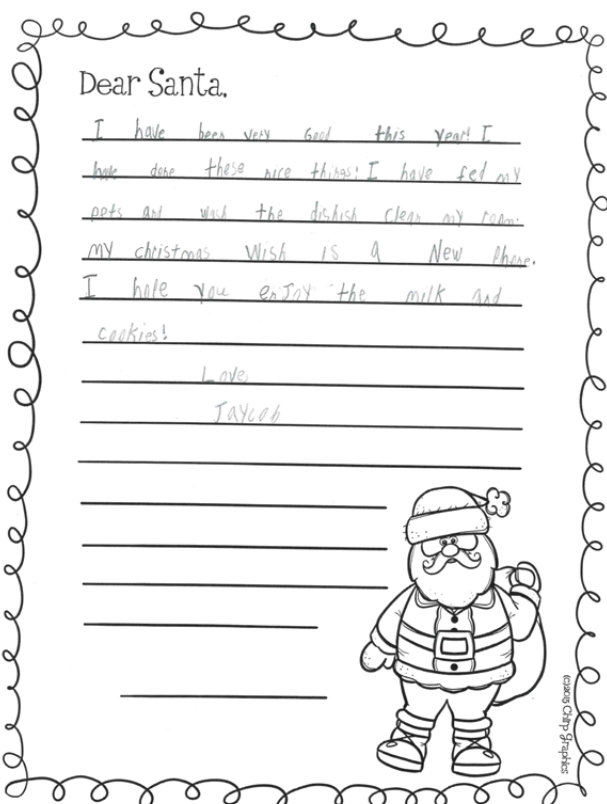 Dear Santa,
I have been very Good this year! I
have done these nice things: I have fed my
pets and wash the dishish clean my room.
my christmas Wish is a New Phone.
I hope you enJoy the milk and
cookies!
Love
Jaycob
(c)2015 Chirp Graphics